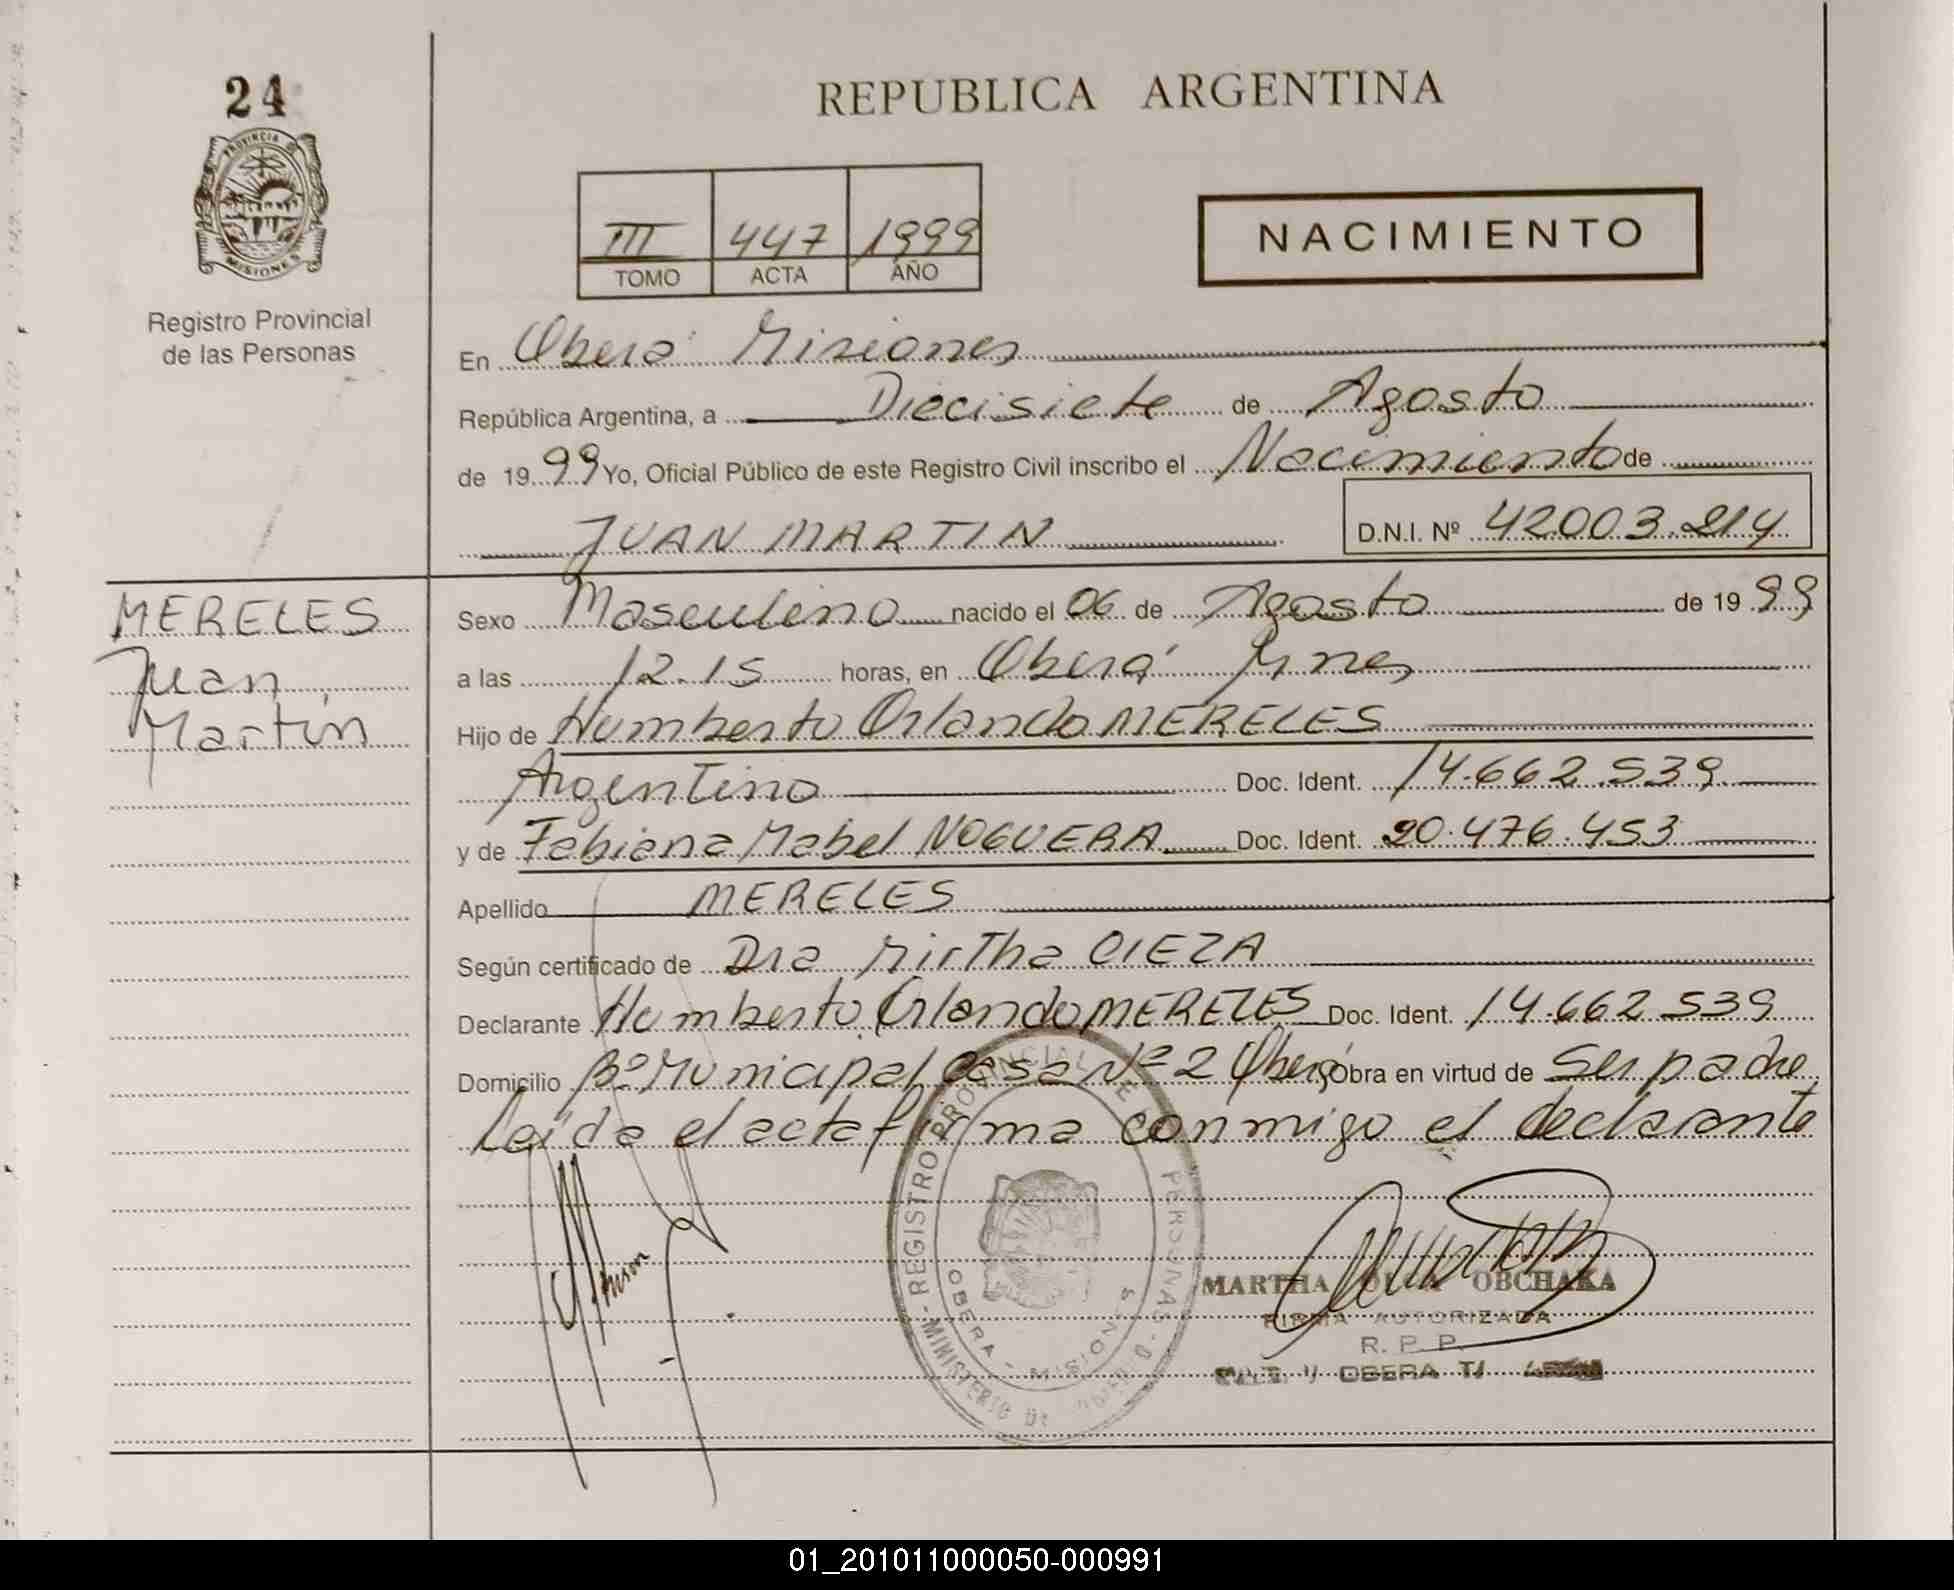 24
PROVINCIA DE
MISIONES
Registro Provincial
de las Personas
REPUBLICA ARGENTINA
III 447 1999
TOMO ACTA AÑO
NACIMIENTO
En Oberá Misiones
República Argentina, a Diecisiete de Agosto
de 1999 Yo, Oficial Público de este Registro Civil inscribo el Nacimiento de
JUAN MARTIN D.N.I. Nº 42003.214
MERELES
Juan
Martín
Sexo Masculino nacido el 06 de Agosto de 1999
a las 12.15 horas, en Oberá Mnes
Hijo de Humberto Orlando MERELES
Argentino Doc. Ident. 14.662.539
y de Fabiana Mabel NOGUERA Doc. Ident. 20.476.453
Apellido MERELES
Según certificado de Dra Mirtha OIEZA
Declarante Humberto Orlando MERELES Doc. Ident. 14.662539
Domicilio Bº Municipal casa Nº 2 Oberá Obra en virtud de Ser padre
Leída el acta firma conmigo el declarante
REGISTRO PROVINCIAL DE PERSONAS
MINISTERIO DE
OBERA - MISIONES
MARTHA OBCHAKA
FIRMA AUTORIZADA
R. P. P.
OBERA
01_201011000050-000991